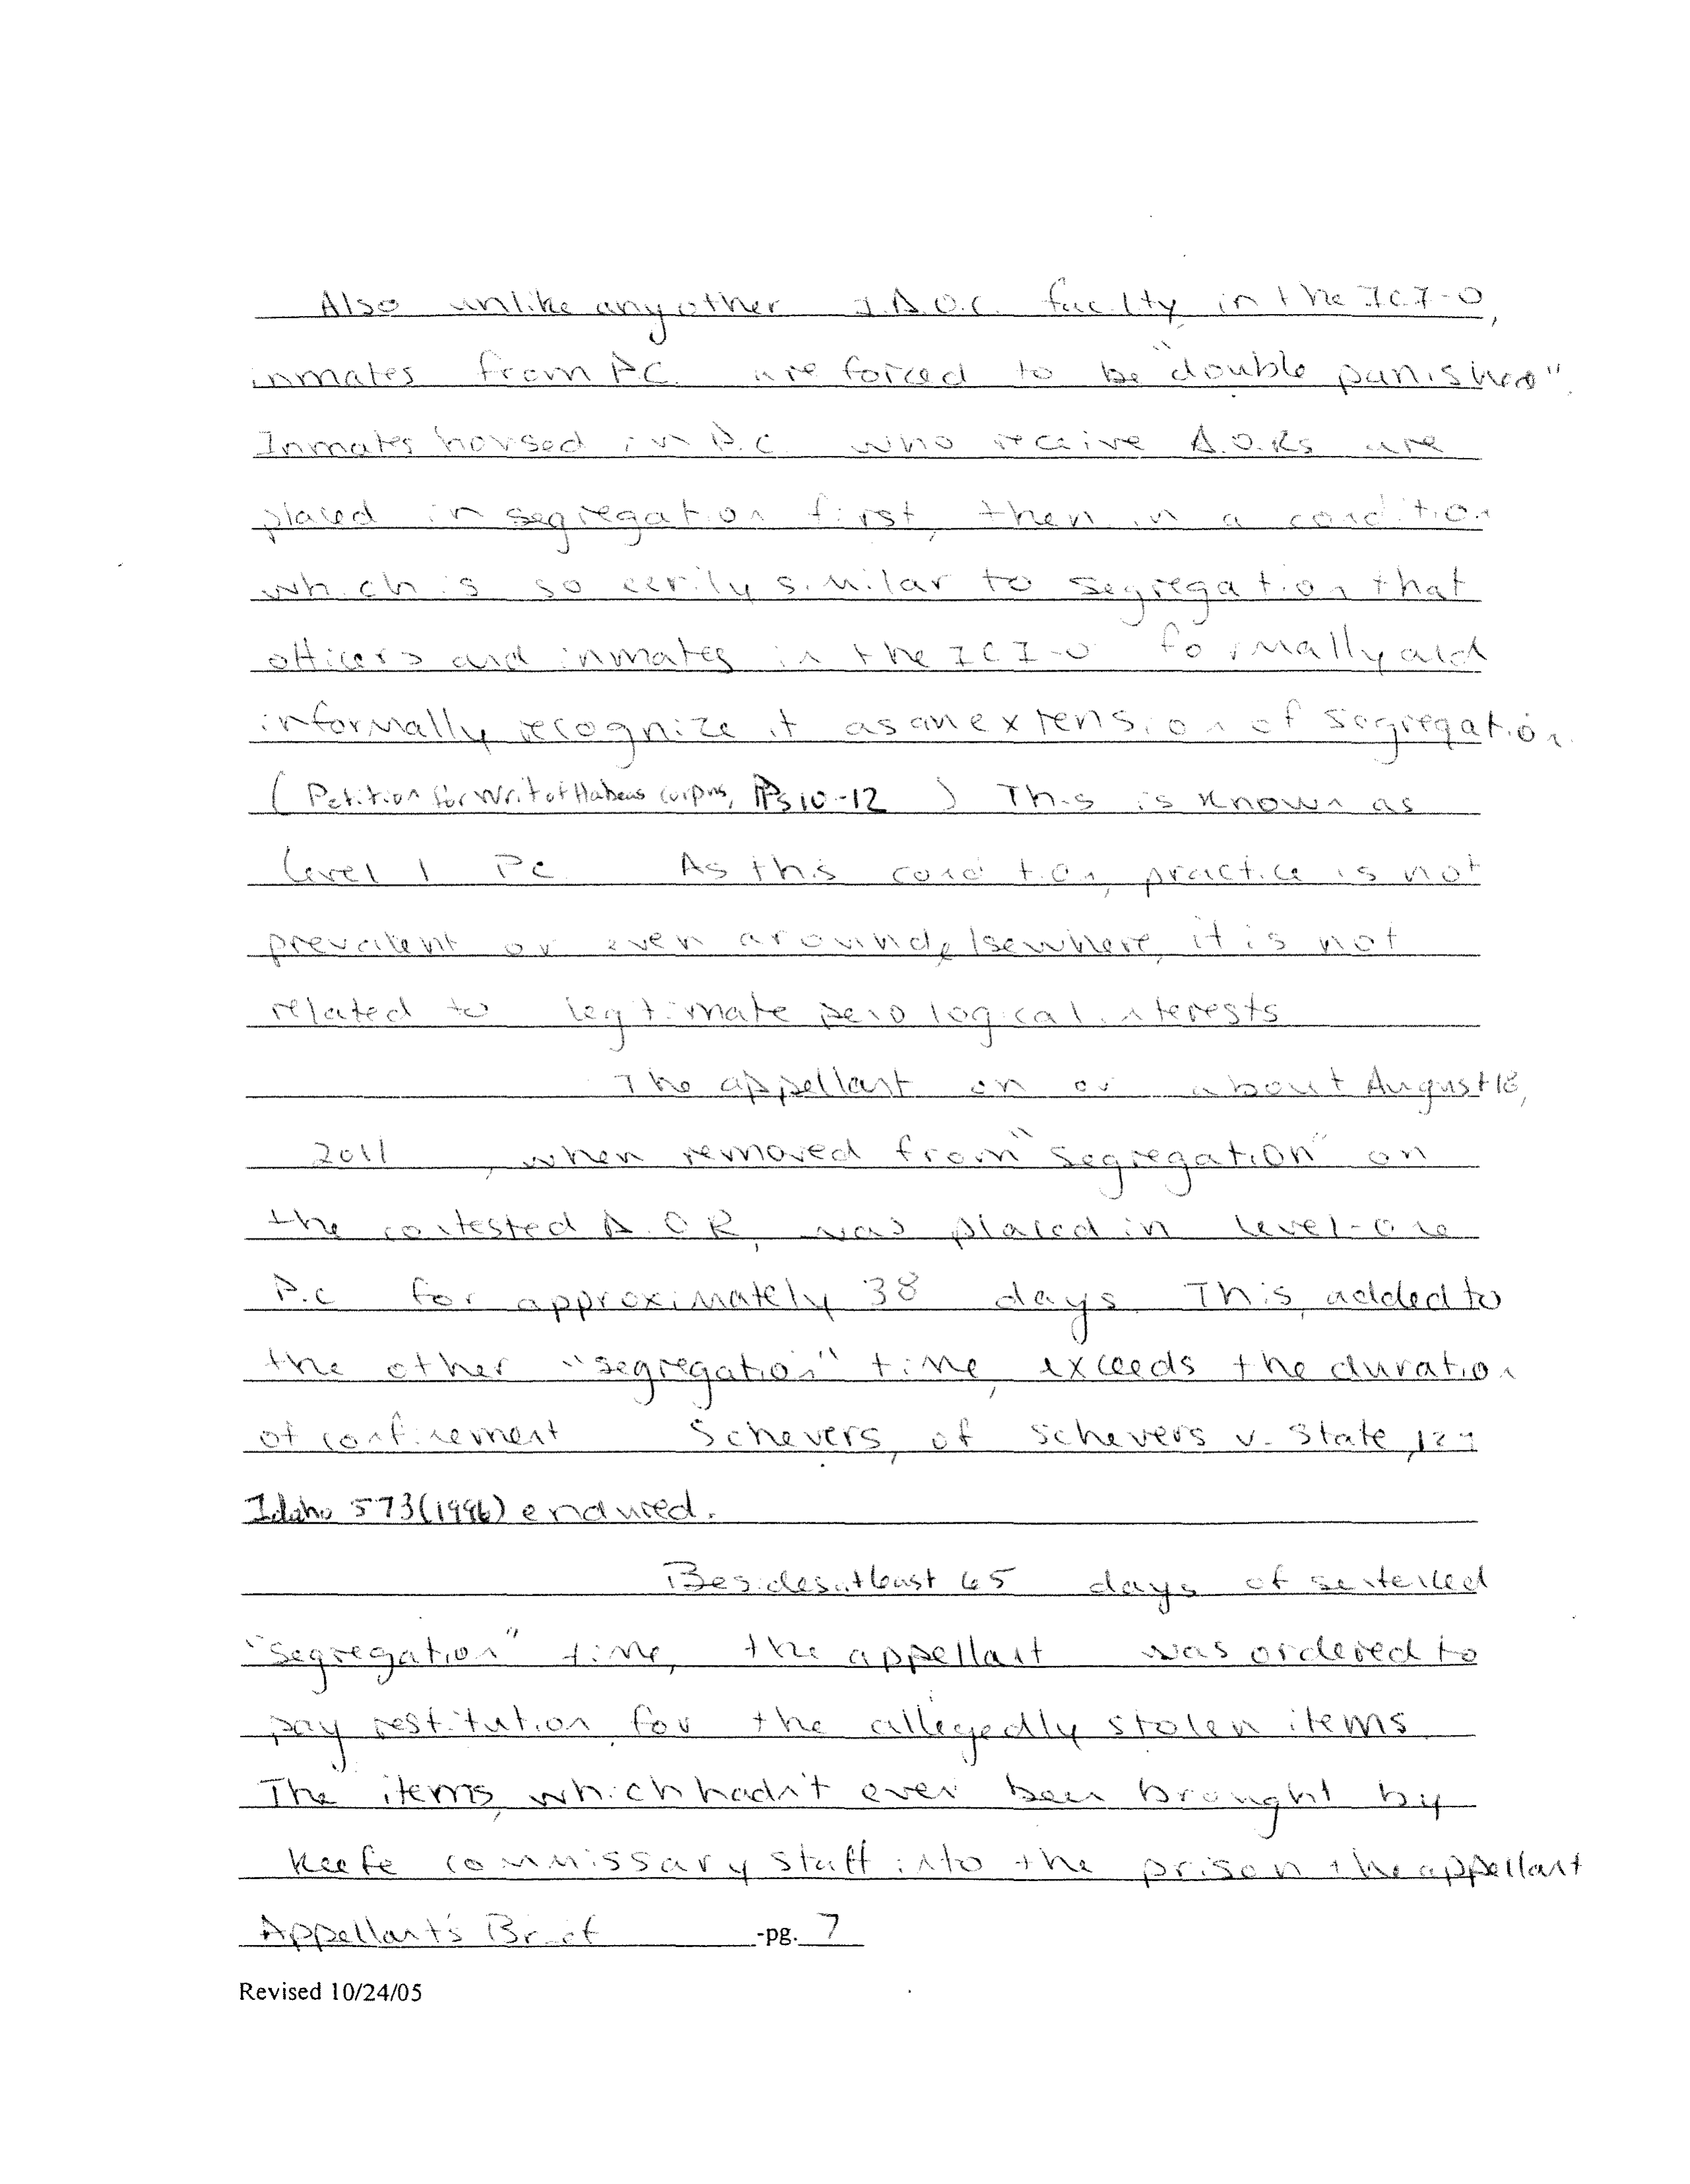 Also unlike any other I.D.O.C. faculty in the ICI-O,
inmates from P.C. are forced to be "double punished".
Inmates housed in P.C. who receive D.O.Rs are
placed in segregation first, then in a condition
which is so eerily similar to segregation that
officers and inmates in the ICI-O formally and
informally recognize it as an extension of segregation.
(Petition for Writ of Habeas Corpus, PPs 10-12) This is known as
level 1 PC. As this condition, practice is not
prevalent or even around elsewhere, it is not
related to legitimate penological interests
The appellant on or about August 18,
2011, when removed from "segregation" on
the contested D.O.R, was placed in level-one
P.C for approximately 38 days. This, added to
the other "segregation" time, exceeds the duration
of confinement Schevers, of Schevers v. State,
Idaho 573 (1996) endured.
Besides at least 65 days of sentenced
"segregation" time, the appellant was ordered to
pay restitution for the allegedly stolen items.
The items, which hadn't even been brought by
Keefe commissary staff into the prison the appellant
Appellant's Brief -pg. 7
Revised 10/24/05